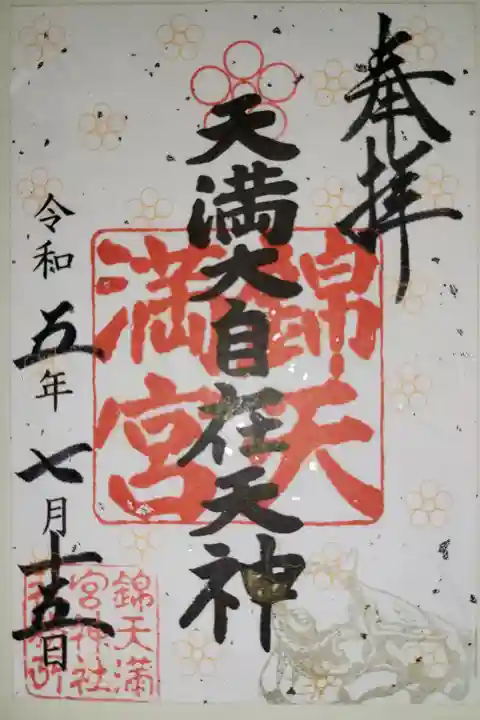 奉拝
天満大自在天神
錦天満宮
令和五年七月十五日
錦天満
宮神社